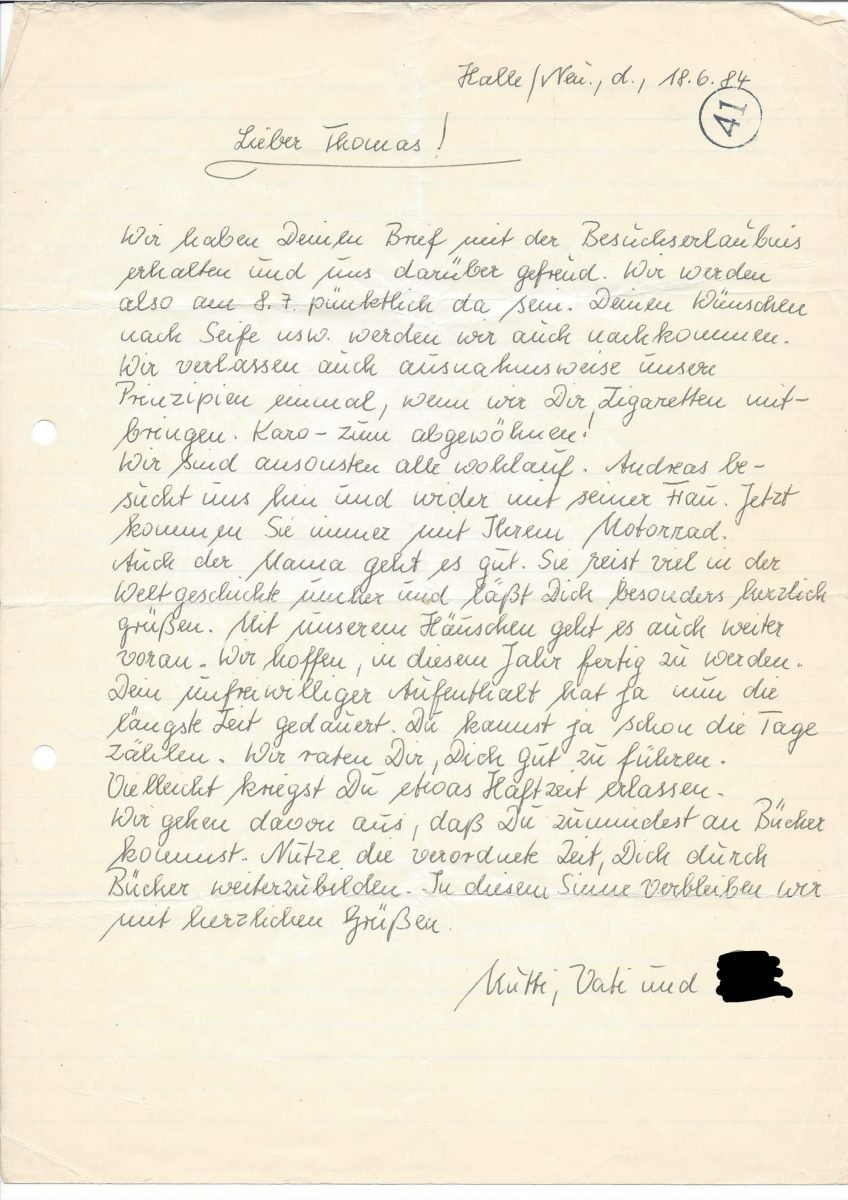 Halle/Neu., d., 18.6.84
41
Lieber Thomas!
Wir haben Deinen Brief mit der Besuchserlaubnis
erhalten und uns darüber gefreud. Wir werden
also am 8.7. pünktlich da sein. Deinen Wünschen
nach Seife usw. werden wir auch nachkommen.
Wir verlassen auch ausnahmsweise unsere
Prinzipien einmal, wenn wir Dir Zigaretten mit-
bringen. Karo - zum abgewöhnen!
Wir sind ansonsten alle wohlauf. Andreas be-
sucht uns hin und wider mit seiner Frau. Jetzt
kommen Sie immer mit Ihrem Motorrad.
Auch der Mama geht es gut. Sie reist viel in der
Weltgeschichte umher und läßt Dich besonders herzlich
grüßen. Mit unserem Häuschen geht es auch weiter
voran. Wir hoffen, in diesem Jahr fertig zu werden.
Dein unfreiwilliger Aufenthalt hat ja nun die
längste Zeit gedauert. Du kannst ja schon die Tage
zählen. Wir raten Dir, Dich gut zu führen.
Vielleicht kriegst Du etwas Haftzeit erlassen.
Wir gehen davon aus, daß Du zumindest an Bücher
kommst. Nutze die verordnete Zeit, Dich durch
Bücher weiterzubilden. In diesem Sinne verbleiben wir
mit herzlichen Grüßen.
Mutti, Vati und